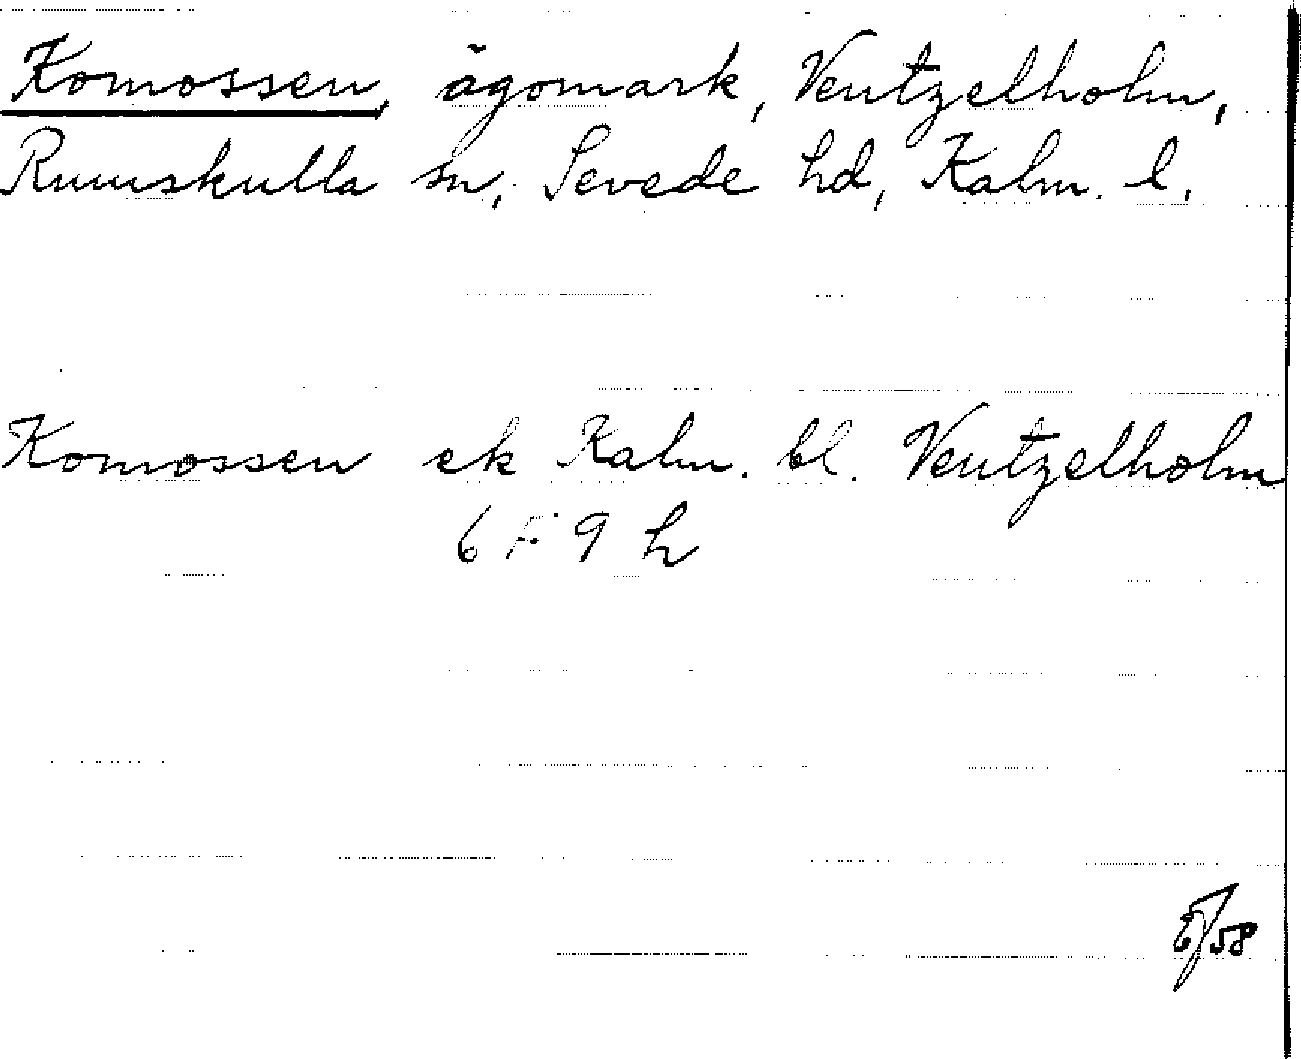 Komossen, ägomark, Ventzelholm,
Rumskulla sn, Sevede hd, Kalm. l.
Komossen ek Kalm. bl. Ventzelholm
6 F 9 h
/58